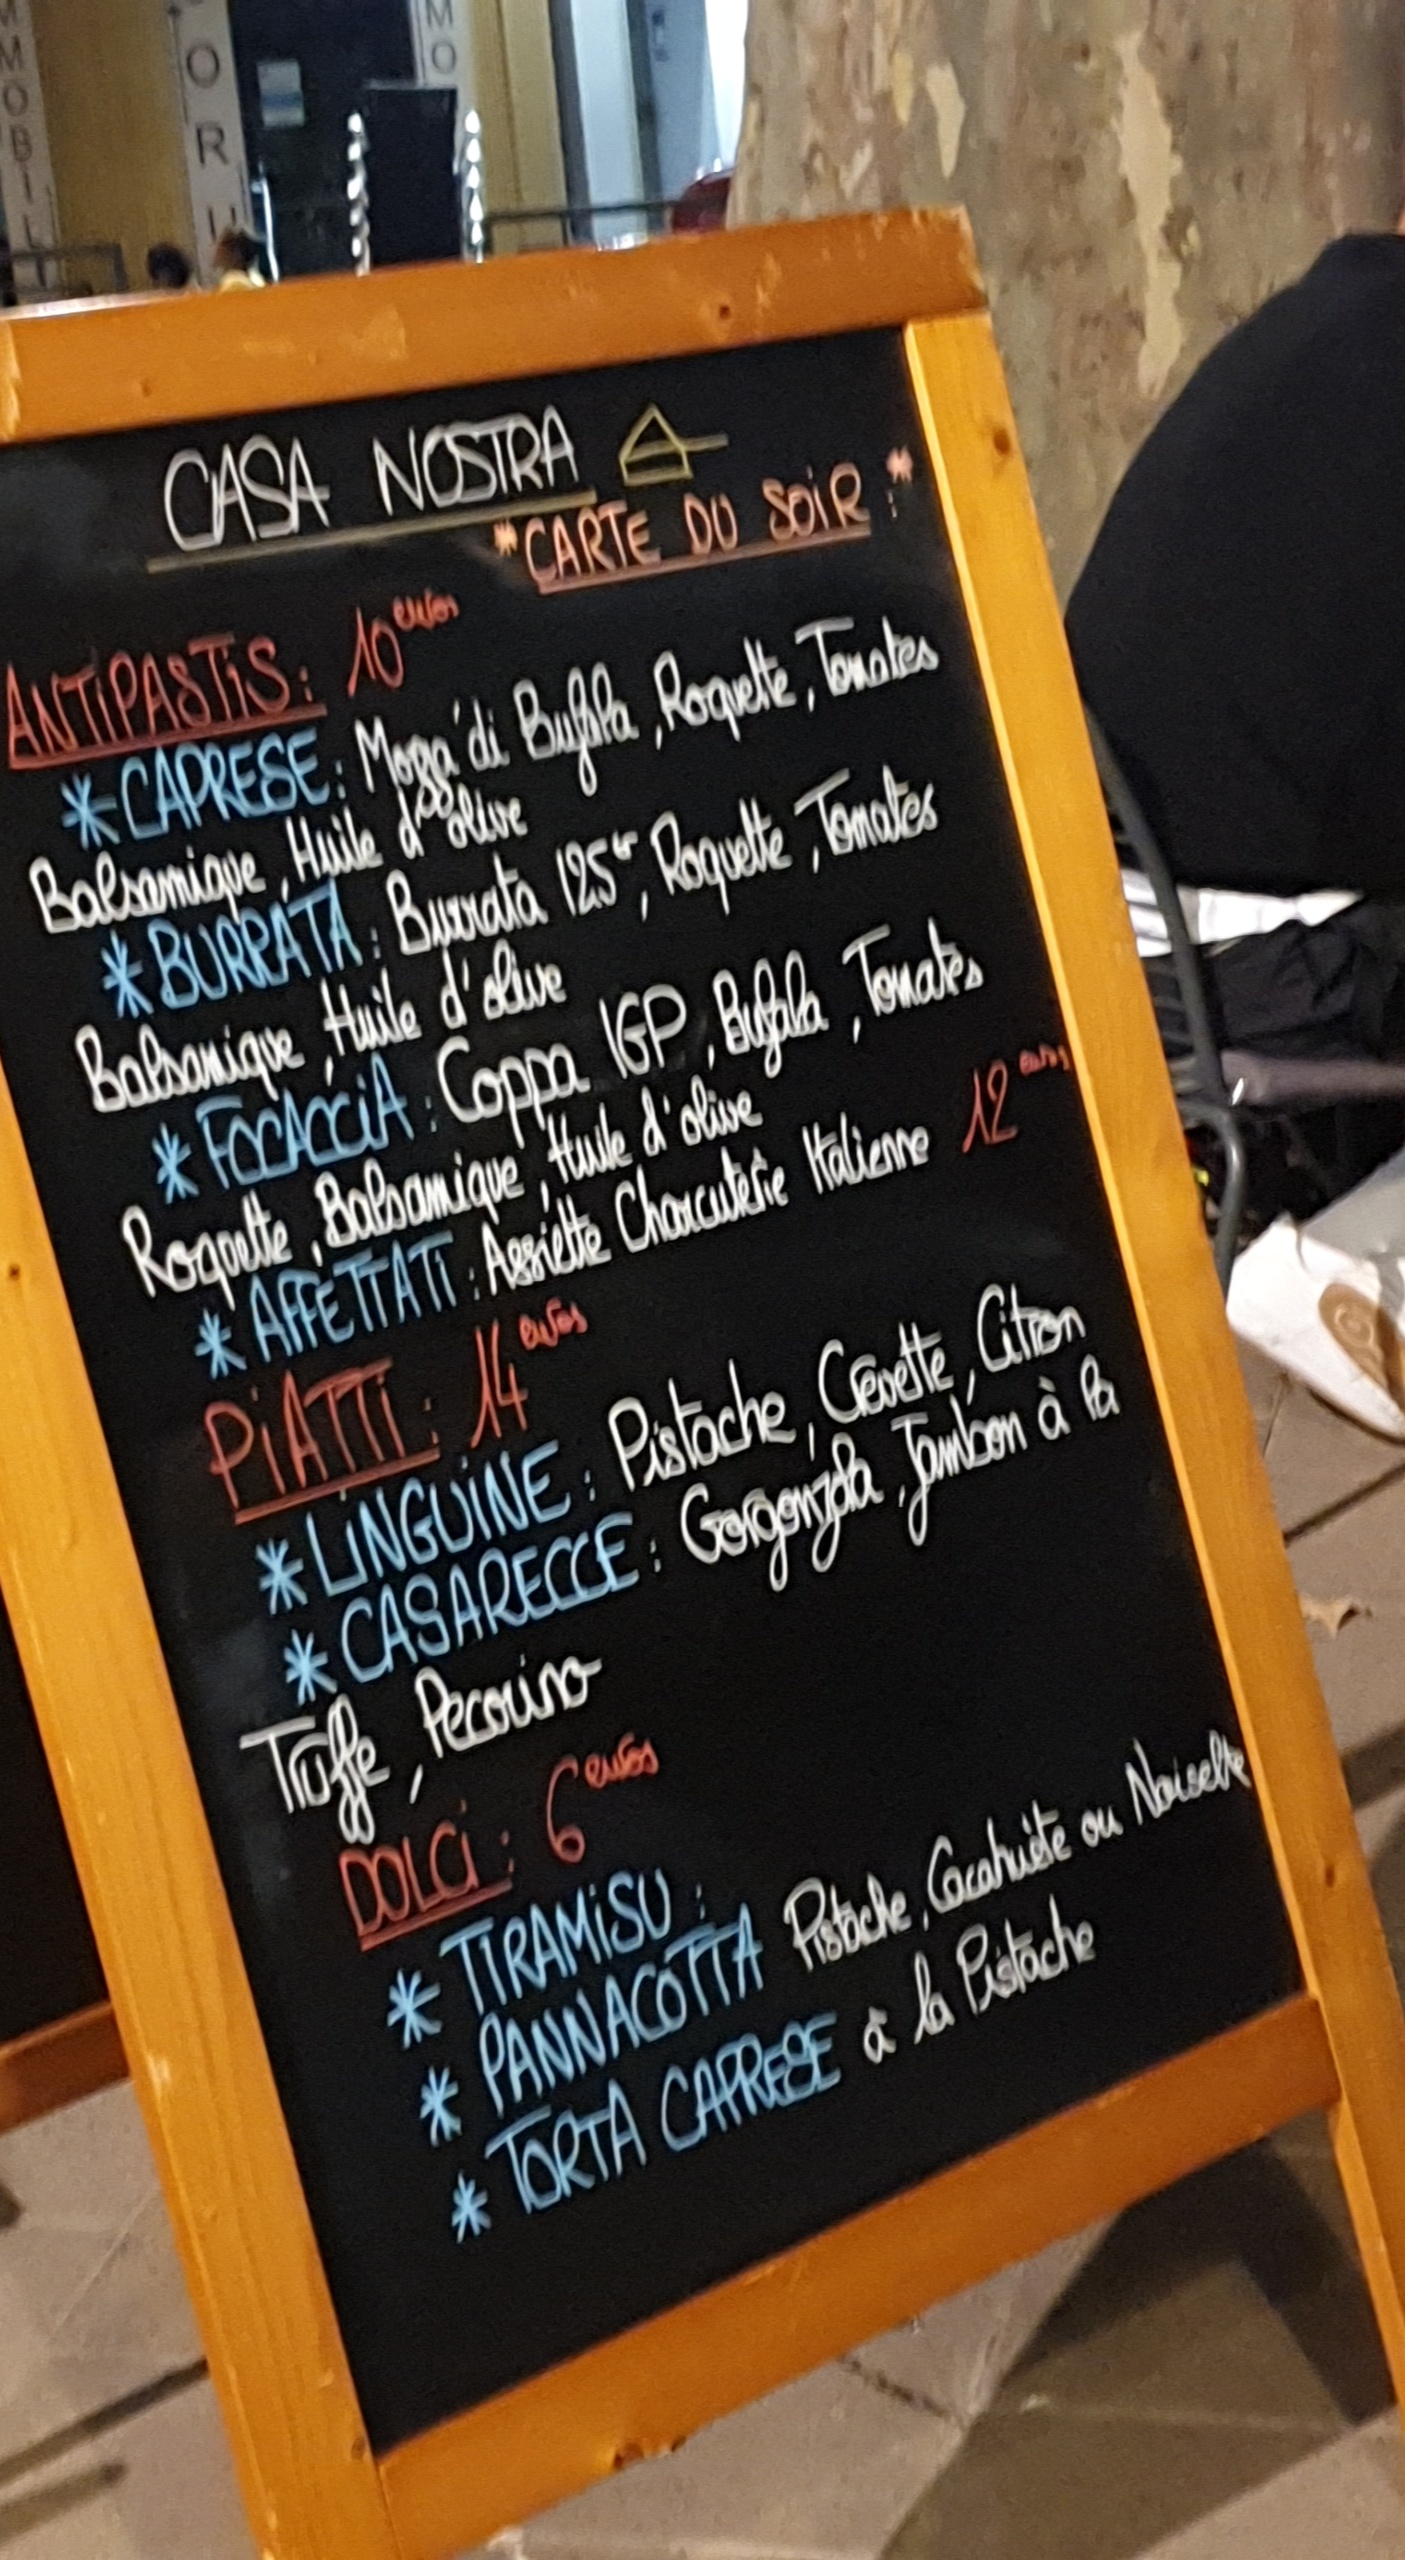 MMOBIL
ORU
MO
CASA NOSTRA
*CARTE DU SOIR :*
ANTIPASTIS : 10 euros
* CAPRESE : Mozza di Bufala, Roquette, Tomates
Balsamique, Huile d'olive
* BURRATA : Burrata 125gr, Roquette, Tomates
Balsamique, Huile d'olive
* FOCACCIA : Coppa IGP, Bufala, Tomates
Roquette, Balsamique, Huile d'olive
* AFFETTATI : Assiette Charcuterie Italienne 12 euros
PIATTI : 14 euros
* LINGUINE : Pistache, Crevette, Citron
* CASARECCE : Gorgonzola, Jambon à la
Truffe, Pecorino
DOLCI : 6 euros
* TIRAMISU :
* PANNACOTTA Pistache, Cacahuète ou Noisette
* TORTA CAPRESE à la Pistache